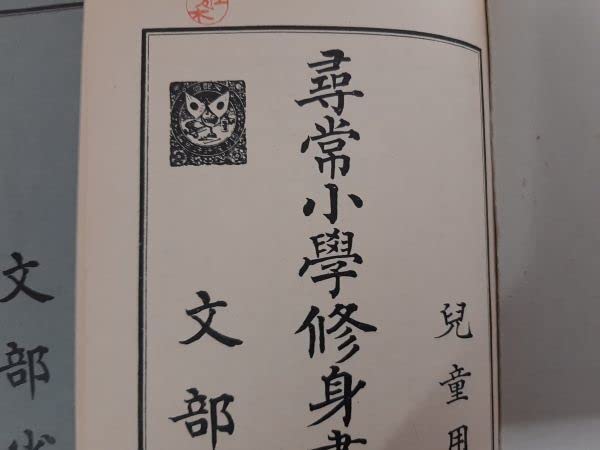 兒童用
尋常小學修身書
文部
文部省